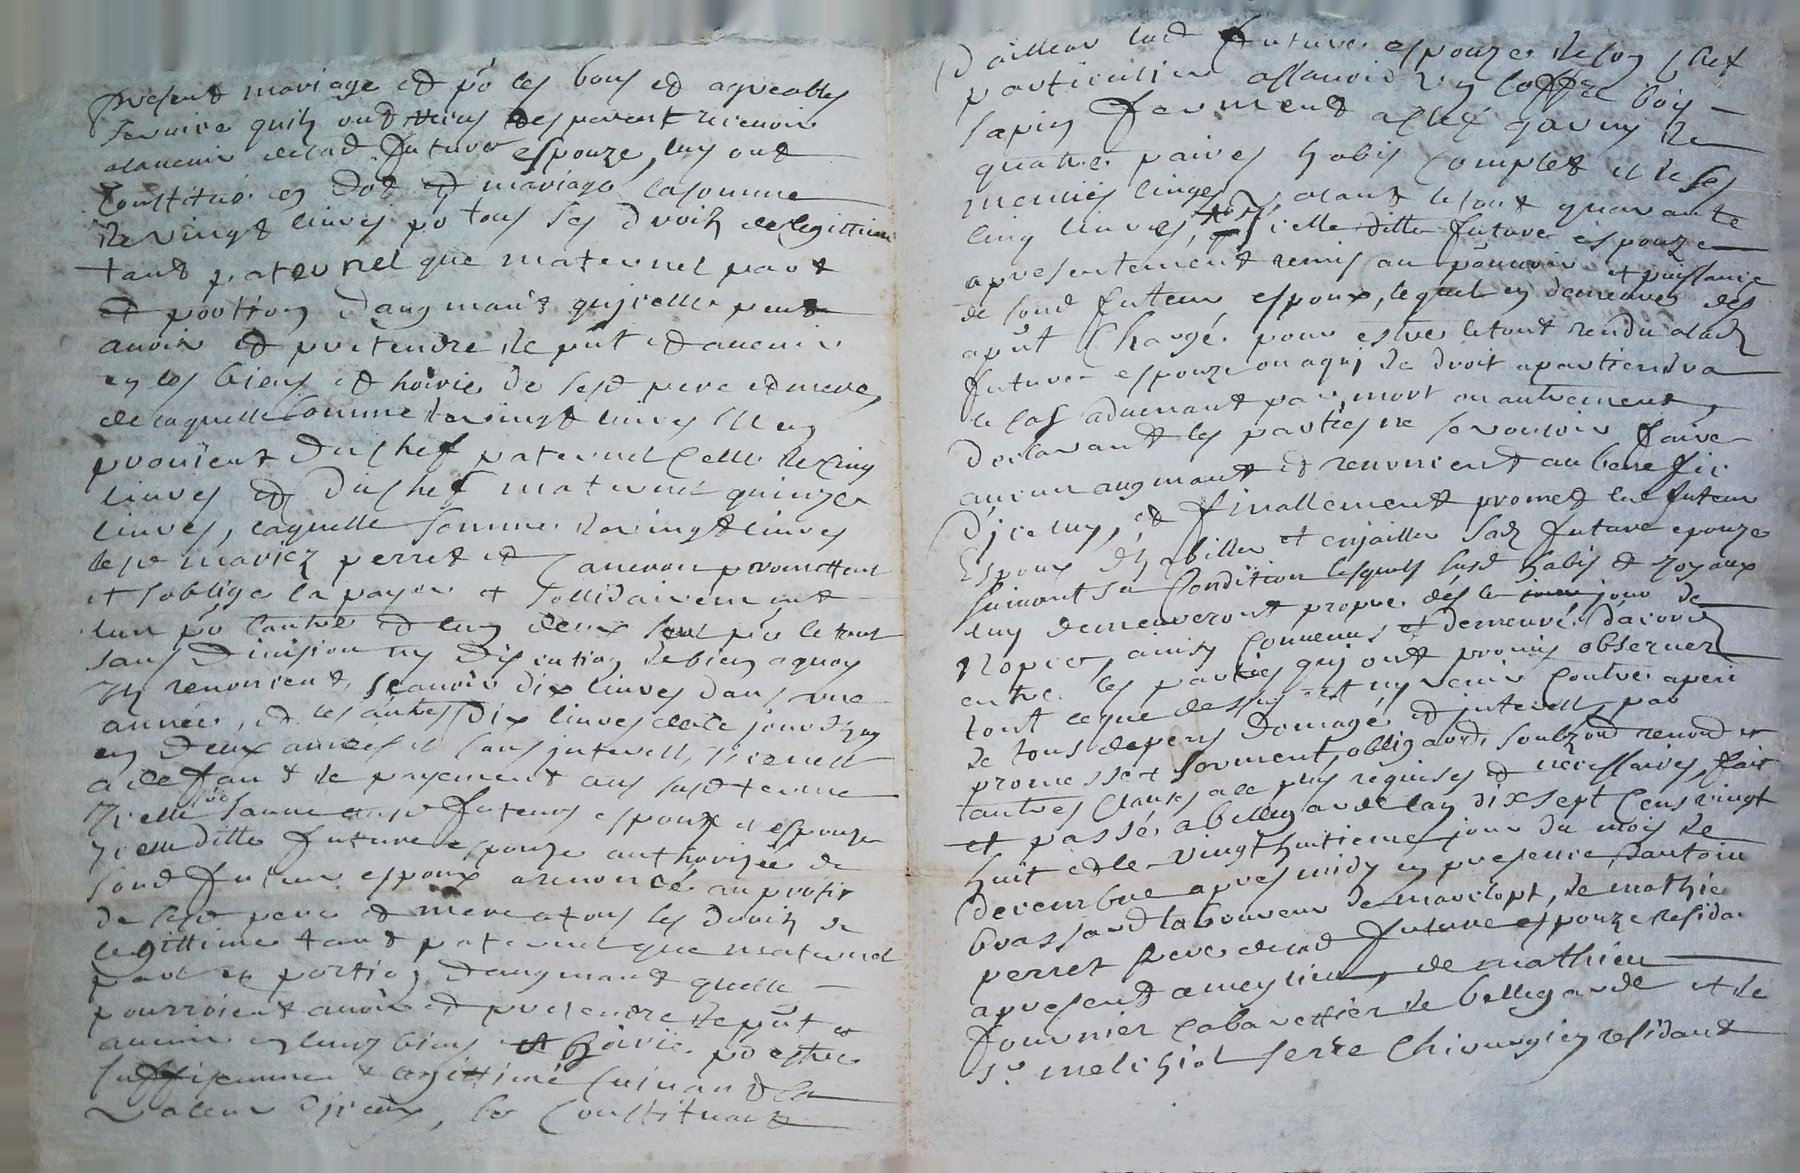 present mariage et po les bons et agreables
service quilz ont receus des parents recevoir
aladvenir delad future espouze, luy ont
constitué en dot et mariage la somme
de vingt livres po tous ses droitz de legittime
tant paternel que maternel part
et portion daugmant quicelle peut
avoir et pretendre de pnt et avenir
en les biens et hoirie de sesd pere et mere,
de laquelle somme de vingt livres Il en
provient du chef paternel celle de cinq
livres et du chef maternel quinze
livres, laquelle somme de vingt livres
lesd mariez perret et promettent
et soblige la payer et sollidairement
lun po lautre et eux deux seul po le tout
sans division ny discution de bien a quoy
Ils renoncent, scavoir dix livres dans une
année, et les autres dix livres dece jourdhuy
en deux années et sans interest, sicenest
a deffaut de payement aux susd terme
future espouze authorizée de
sond futur espoux a renoncé au profit
de sesd pere et mere a tous les droitz de
legittime tant paternel que maternel
part et portion daugmant quelle
pourroient avoir et pretendre de pnt et
avenir en leurs biens et hoirie po estre
suffisamment legittimé suivant la
valeur diceux, se constituant
d'ailleur lad future espouze de son chef
particulier assavoir un coffre bois
sapin fermant a clef garny de
quatre paires habis complet et de ses
menues linges, valant le tout quarante
cinq livres, icelle ditte future espouze
a presentement remis au pouvoir et puissance
de sond futeur espoux, lequel en demeurer des
apnt chargé pour estre letout rendu alad
future espouze ou a qui de droit apartiendra
le cas advenant par mort ou autrement,
declarant les parties ne se vouloir faire
aucun augmant et renoncent au benefice
dicelluy, et finallement promet led futeur
espoux dhabiller et enjailler sad future epouze
suivant sa condition lesquels susd habis et joyaux
luy demeureront propre dés le jour de
nopces, ainsy convenus et demeuré d'acord
entre les parties qui ont promis observer
tout ceque dessus et ny venir contre a peine
de tous depens domage et interest, par
promesse et serment, obligaond soubzond renond et
tautres clauses a ce plus requises et necessaires, fait
et passé a bellegarde lan dix sept cens vingt
huit et le vingthuitieme jour du mois de
decembre apres midy en presence dantoine
brassard laboureur de marclopt, de mathie
perret frere delad future espouze residan
apresent a meylieu, de mathieu
fournier cabarettier de bellegarde et de
sr. melchiol serre chirurgien residant